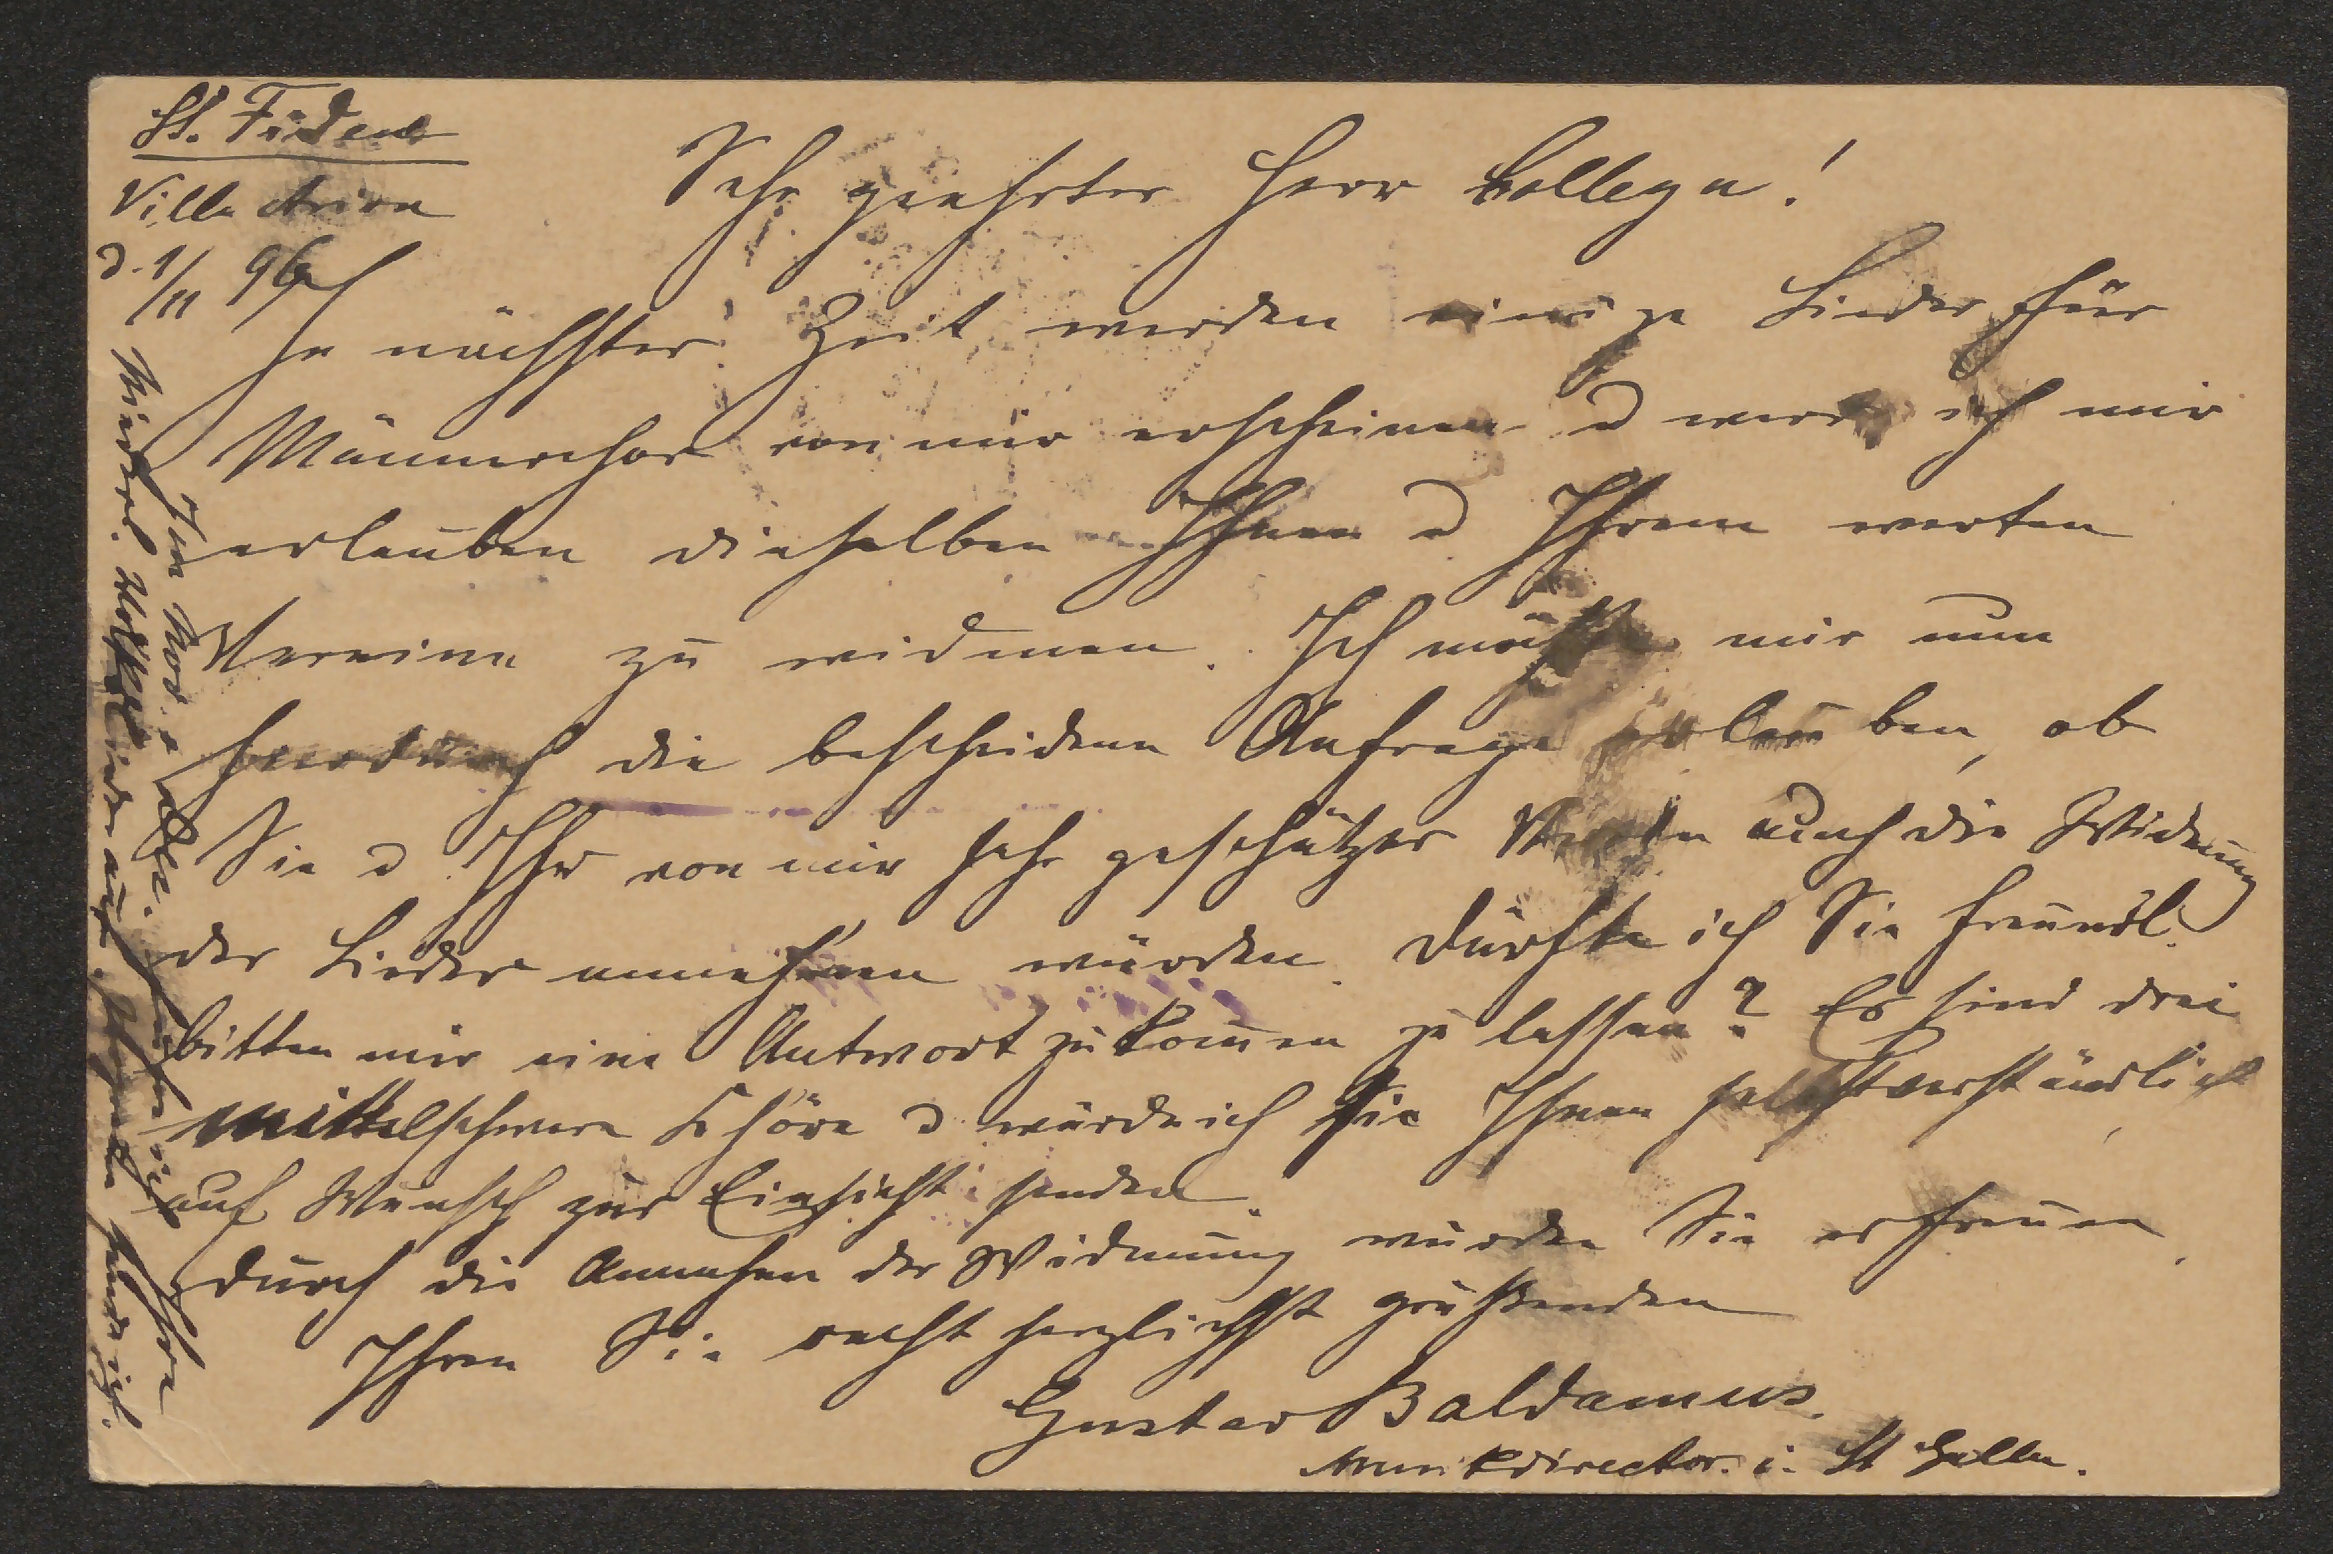 St. Fiden
Villa Arion
d. 1/II 96
Sehr geehrter Herr Collega!
In nächster Zeit werden einige Lieder für
Männerchor von mir erscheinen u werde ich mir
erlauben dieselben Ihnen u Ihrem werten
Vereine zu widmen. Ich möchte mir nun
hierdurch die bescheidene Anfrage erlauben, ob
Sie u Ihr von mir sehr geschätzter Verein auch die Widmung
der Lieder annehmen würden. Dürfte ich Sie freundl.
bitten mir eine Antwort zukommen zu lassen? Es sind drei
mittelschwere Chöre u würde ich sie Ihnen selbstverständlich
auf Wunsch zur Einsicht senden.
Durch die Annahme der Widmung würden Sie erfreuen
Ihren Sie recht herzlichst grüßenden
Gustav Baldamus.
Musikdirector i. St Gallen.